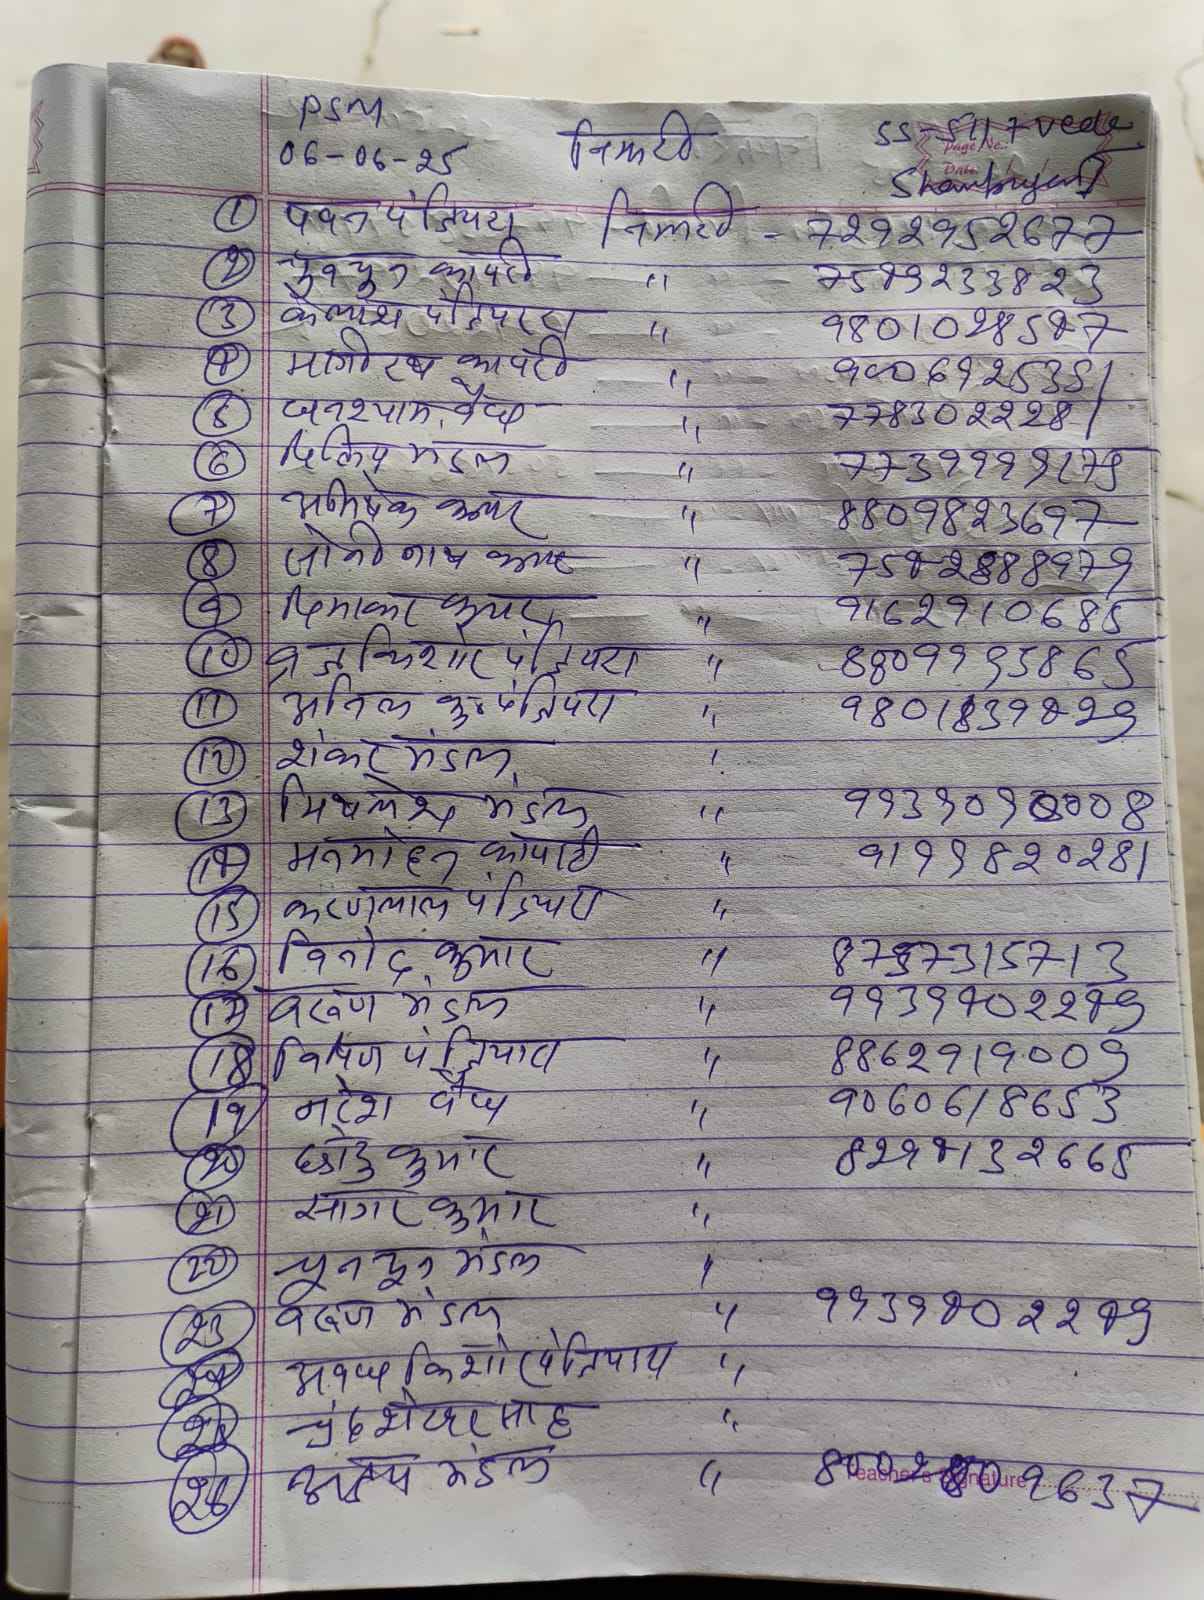 PSM
06-06-25 निमाटी SS-5117 veda
Page No.
Date
① पवन पंजियारा निमाटी - 7292952677
② चुनचुन कापरी " 7549233823
③ कैलाश पंजियारा " 9801028547
④ भागीरथ कापरी " 9006925351
⑤ घनश्याम वैध " 7783022281
⑥ दिलिप मंडल " 7739999179
⑦ अभिषेक कुमार " 8809823697
⑧ कुमार " 7542888979
⑨ दिवाकर कुमार " 9162910685
⑩ व्रज किशोर पंजियारा " 8809993865
⑪ अनिल कु० पंजियारा " 9801839429
⑫ शंकर मंडल "
⑬ मिथलेश मंडल " 9939090008
⑭ मनमोहन कापरी " 9199820281
⑮ पंजियारा "
⑯ विनोद कुमार " 8797315713
⑰ वरूण मंडल " 9939402249
⑱ पंजियारा " 8862919009
⑲ नरेश वैध " 9060618653
⑳ छोटु कुमार " 8294132665
㉑ सागर कुमार "
㉒ चुनचुन मंडल "
㉓ वरूण मंडल " 9939402249
㉔ अवध किशोर पंजियारा "
㉕ चंद्रशेखर साह "
㉖ मंडल "
Teacher's Signature